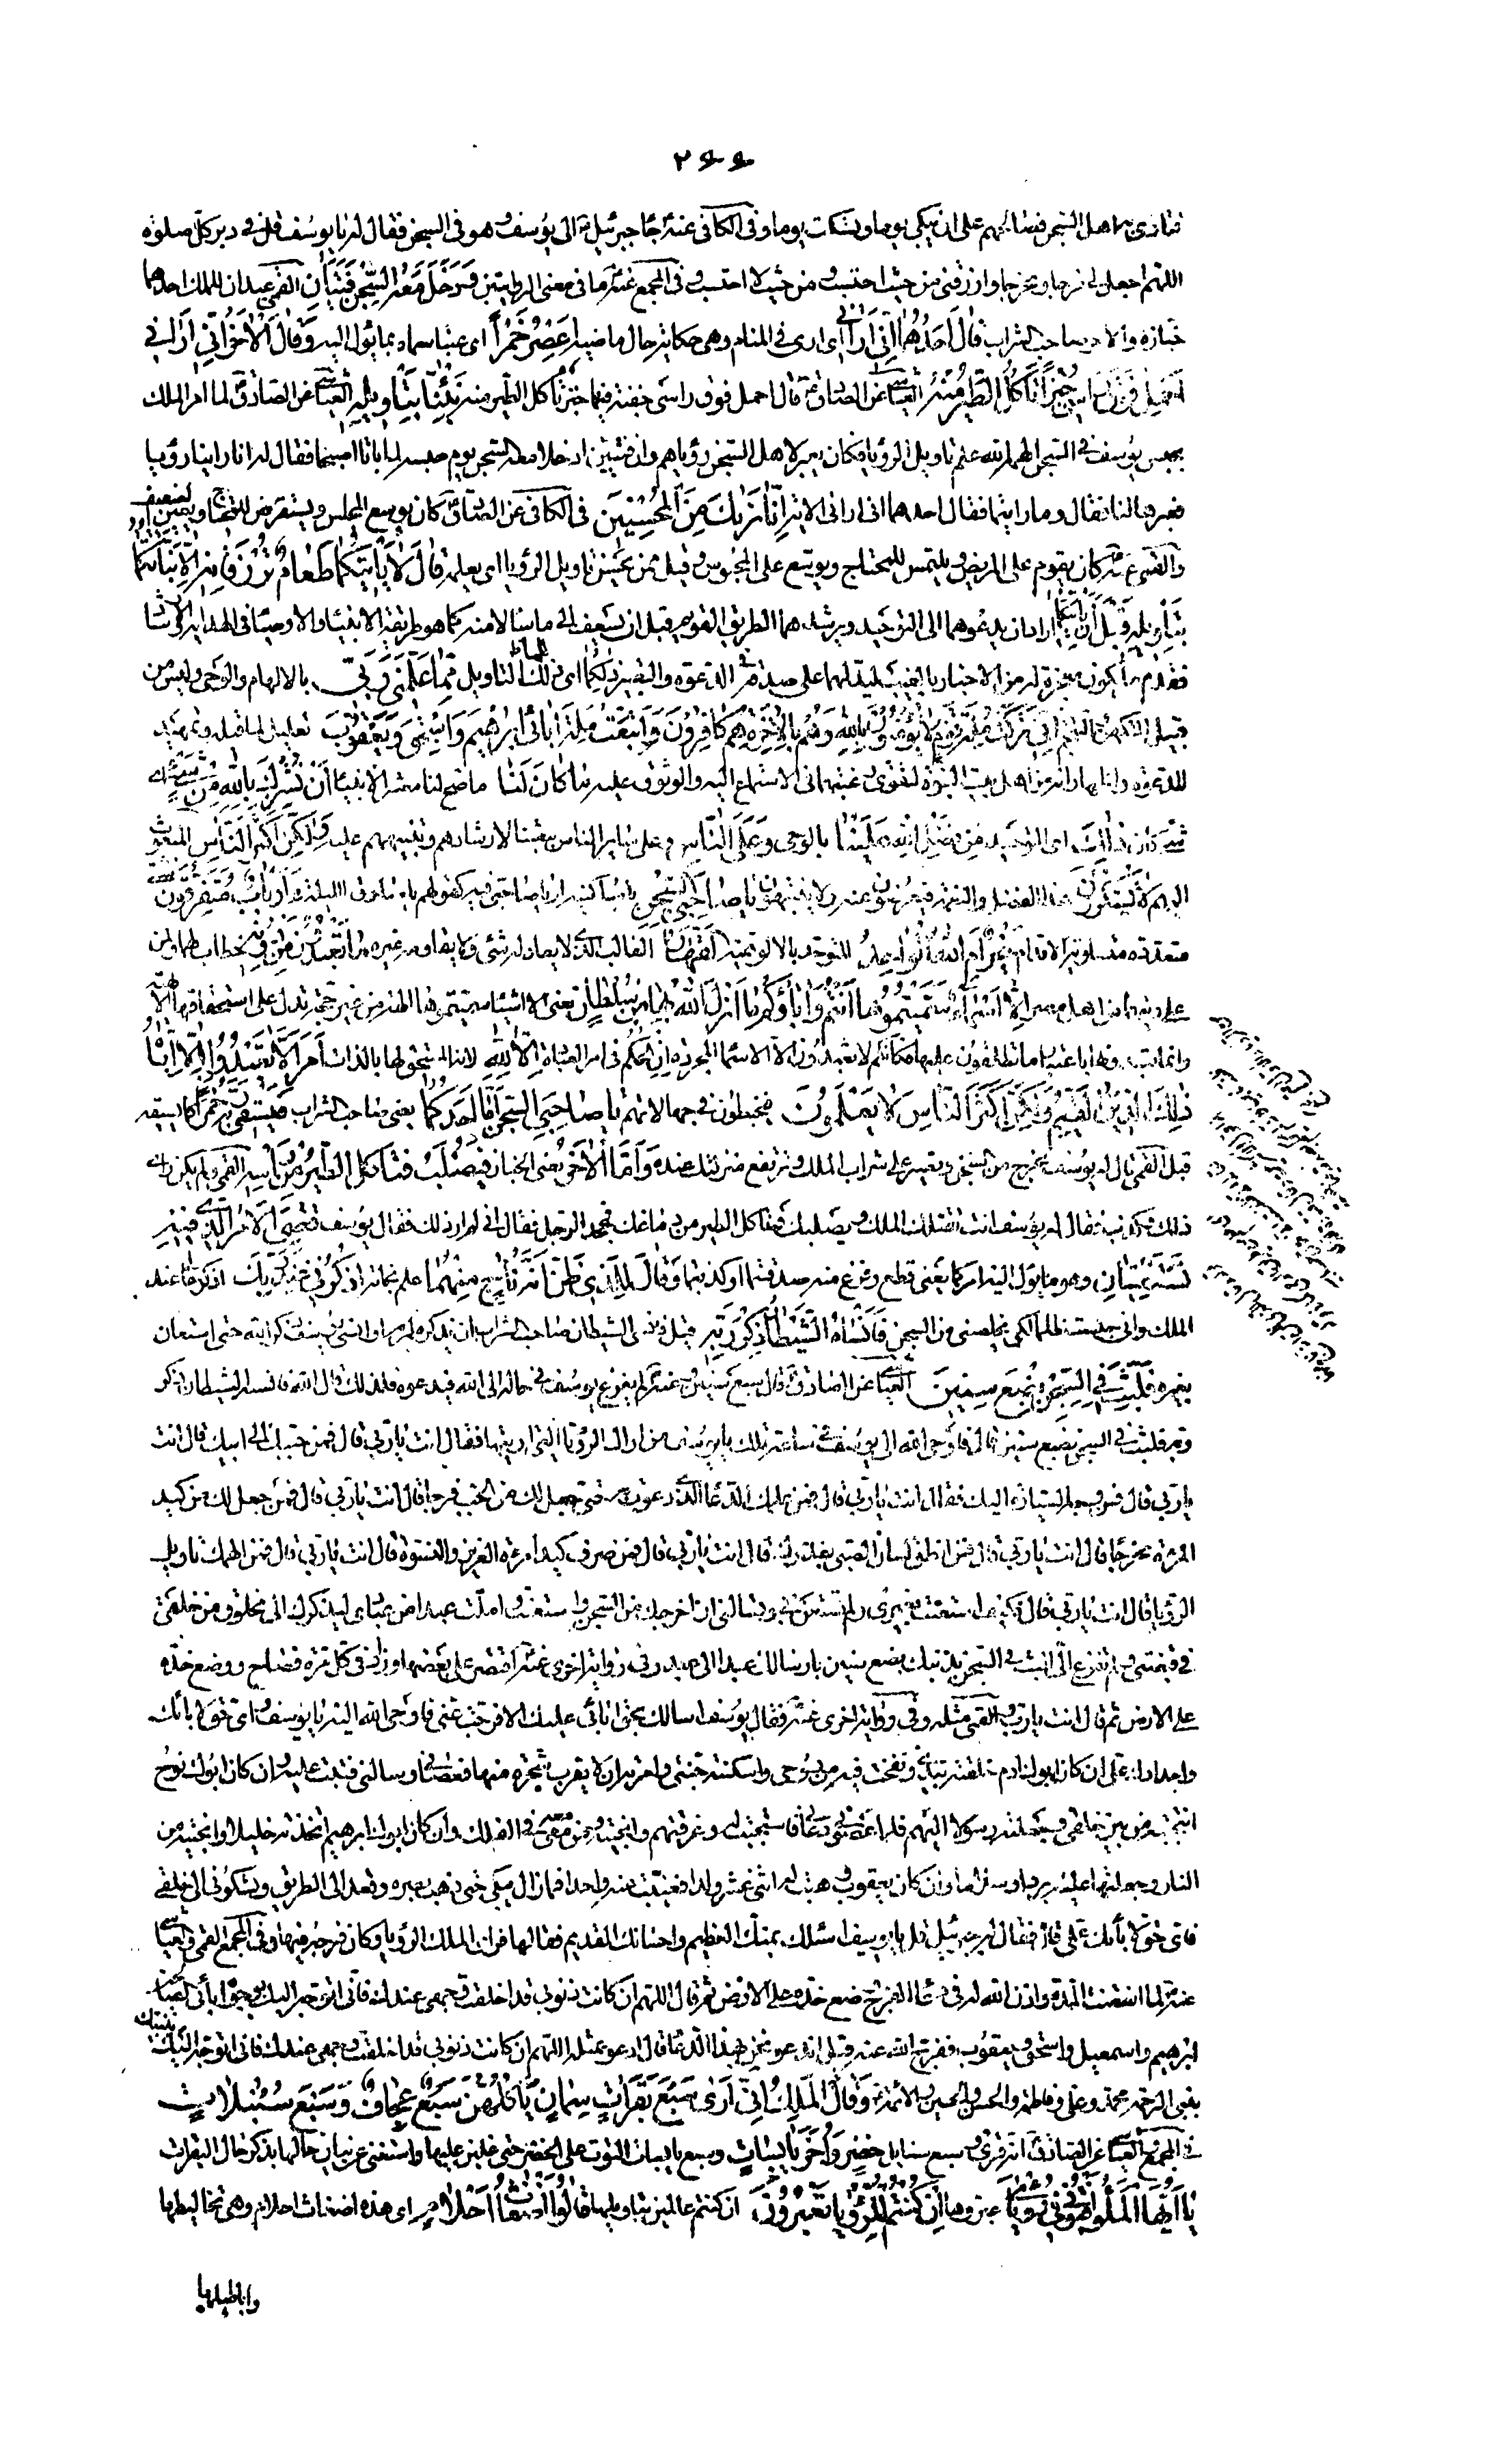 ٢٤٤
فتأذى بها اهل السجن فصالحهم على ان يبكي يوما ويسكت يوما وفي الكافي عنه ع جاء جبرئيل ع الى يوسف وهو في السجن فقال له يا يوسف قل في دبر كل صلوة
اللهم اجعل لي فرجا ومخرجا وارزقني من حيث احتسب ومن حيث لا احتسب وفي المجمع عنه ع ما في معنى الروايتين وَدَخَلَ مَعَهُ السِّجْنَ فَتَيَانِ القمي عبدان للملك احدهما
خبازه والاخر صاحب الشراب قَالَ اَحَدُهُمَا اِنِّي اَرَانِي اي ارى في المنام وهي حكاية حال ماضية اَعْصِرُ خَمْراً اي عنبا سماه بما يؤل اليه وَقَالَ الْاٰخَرُ اِنِّي اَرَانِي
اَحْمِلُ فَوْقَ رَاْسِي خُبْزاً تَاْكُلُ الطَّيْرُ مِنْهُ العياشي عن الصادق ع قال احمل فوق راسي جفنة فيها خبز تأكل الطير منه نَبِّئْنَا بِتَاْوِيلِهِ العياشي عن الصادق ع لما امر الملك
بحبس يوسف في السجن الهمه الله علم تاويل الرؤيا فكان يعبر لاهل السجن رؤياهم وان فتيين ادخلا معه السجن يوم حبسه لما باتا اصبحا فقالا له انا راينا رؤيا
فعبرها لنا فقال وما رايتما فقال احدهما اني اراني الاية اِنَّا نَرٰيكَ مِنَ الْمُحْسِنِينَ في الكافي عن الصادق ع كان يوسع المجلس ويستقرض للمحتاج ويعين الضعيف
والقمي عنه ع كان يقوم على المريض ويلتمس للمحتاج ويوسع على المحبوس وقيل ممن يحسن تاويل الرؤيا اي يعلمه قَالَ لَا يَاْتِيكُمَا طَعَامٌ تُرْزَقَانِهِ اِلَّا نَبَّاْتُكُمَا
بِتَاْوِيلِهِ قَبْلَ اَنْ يَاْتِيَكُمَا اراد ان يدعوهما الى التوحيد ويرشدهما الطريق القويم قبل ان يسعف الى ما سالا منه كما هو طريقة الانبياء والاوصياء في الهداية والارشاد
فقدم ما يكون معجزة له من الاخبار بالغيب ليدلهما على صدقه في الدعوة والتعبير ذٰلِكُمَا اي ذلك التاويل مِمَّا عَلَّمَنِي رَبِّي بالالهام والوحي وليس من
قبيل التكهن والتنجيم اِنِّي تَرَكْتُ مِلَّةَ قَوْمٍ لَا يُؤْمِنُونَ بِاللهِ وَهُمْ بِالْاٰخِرَةِ هُمْ كَافِرُونَ وَاتَّبَعْتُ مِلَّةَ اٰبَائِي اِبْرٰهِيمَ وَاِسْحٰقَ وَيَعْقُوبَ تعليل لما قبله وتمهيد
للدعوة واظهار انه من اهل بيت النبوة لتقوى رغبتهما في الاستماع اليه والوثوق عليه مَا كَانَ لَنَا ما صح لنا معشر الانبياء اَنْ نُشْرِكَ بِاللهِ مِنْ شَيْءٍ اي
شيء كان ذٰلِكَ اي التوحيد مِنْ فَضْلِ اللهِ عَلَيْنَا بالوحي وَعَلَى النَّاسِ وعلى سائر الناس ببعثنا لارشادهم وتنبيههم عليه وَلٰكِنَّ اَكْثَرَ النَّاسِ المبعوث
اليهم لَا يَشْكُرُونَ هذا الفضل والنعمة فيعرضون عنه ولا ينتبهون يَا صَاحِبَيِ السِّجْنِ يا ساكنيه او يا صاحبي فيه كقولهم يا سارق الليلة ءَاَرْبَابٌ مُتَفَرِّقُونَ شتى
متعددة متساوية الاقدام خَيْرٌ اَمِ اللهُ الْوَاحِدُ المتوحد بالالوهية الْقَهَّارُ الغالب الذي لا يعادله شيء ولا يقاومه غيره مَا تَعْبُدُونَ مِنْ دُونِهِ خطاب لهما ولمن
على دينهما من اهل مصر اِلَّا اَسْمَاءً سَمَّيْتُمُوهَا اَنْتُمْ وَاٰبَاؤُكُمْ مَا اَنْزَلَ اللهُ بِهَا مِنْ سُلْطَانٍ يعني الا اشياء سميتموها الهة من غير حجة تدل على استحقاقها الالهية
وانما تعبدونها باعتبار ما تطلقون عليها فكانكم لا تعبدون الا الاسماء المجردة اِنِ الْحُكْمُ في امر العبادة اِلَّا لِلّٰهِ لانه المستحق لها بالذات اَمَرَ اَلَّا تَعْبُدُوا اِلَّا اِيَّاهُ
ذٰلِكَ الدِّينُ الْقَيِّمُ وَلٰكِنَّ اَكْثَرَ النَّاسِ لَا يَعْلَمُونَ فيخبطون في جهالاتهم يَا صَاحِبَيِ السِّجْنِ اَمَّا اَحَدُكُمَا يعني صاحب الشراب فَيَسْقِي رَبَّهُ خَمْراً كما يسقيه
قبل القمي قال له يوسف تخرج من السجن وتصير على شراب الملك وترتفع منزلتك عنده وَاَمَّا الْاٰخَرُ يعني الخباز فَيُصْلَبُ فَتَاْكُلُ الطَّيْرُ مِنْ رَاْسِهِ القمي ولم يكن راى
ذلك وكذب فقال له يوسف انت يقتلك الملك ويصلبك وتاكل الطير من دماغك فجحد الرجل فقال اني لم ار ذلك فقال يوسف قُضِيَ الْاَمْرُ الَّذِي فِيهِ
تَسْتَفْتِيَانِ وهو ما يؤل اليه امركما يعني قطع وفرغ منه صدقتما او كذبتما وَقَالَ لِلَّذِي ظَنَّ اَنَّهُ نَاجٍ مِنْهُمَا علم نجاته اذْكُرْنِي عِنْدَ رَبِّكَ اذكر حالي عند
الملك واني حبست ظلما لكي يخلصني من السجن فَاَنْسٰاهُ الشَّيْطَانُ ذِكْرَ رَبِّهِ قيل فانسى الشيطان صاحب الشراب ان يذكره لربه او انسى يوسف ذكر الله حتى استعان
بغيره فَلَبِثَ فِي السِّجْنِ بِضْعَ سِنِينَ العياشي عن الصادق ع قال سبع سنين وعنه ع لم يفزع يوسف في حاله الى الله فيدعوه فلذلك قال الله فانساه الشيطان ذكر
ربه فلبث في السجن بضع سنين قال فاوحى الله الى يوسف في ساعته تلك يا يوسف من اراك الرؤيا التي رايتها فقال انت يا ربي قال فمن حببك الى ابيك قال انت
يا ربي قال فمن وجه السيارة اليك فقال انت يا ربي قال فمن علمك الدعاء الذي دعوت به حتى جعل لك من الجب فرجا قال انت يا ربي قال فمن جعل لك من كيد
المرءة مخرجا قال انت يا ربي قال فمن انطق لسان الصبي بعذرك قال انت يا ربي قال فمن صرف كيد امرءة العزيز والنسوة قال انت يا ربي قال فمن الهمك تاويل
الرؤيا قال انت يا ربي قال فكيف استعنت بغيري ولم تستعن بي وتسالني ان اخرجك من السجن واستعنت واملت عبدا من عبادي ليذكرك الى مخلوق من خلقي
في قبضتي ولم تفزع الي البث في السجن بذنبك بضع سنين بارسالك عبدا الى عبد وفي رواية اخرى عنه ع اقتصر على بعضها وزاد في كل مرة فصاح ووضع خده
على الارض ثم قال انت يا رب والقمي مثله وفي رواية اخرى عنه ع فقال يوسف اسالك بحق ابائي عليك الا فرجت عني فاوحى الله اليه يا يوسف واي حق لابائك
واجدادك علي ان كان ابوك ادم خلقته بيدي ونفخت فيه من روحي واسكنته جنتي وامرته ان لا يقرب شجرة منها فعصاني وسالني فتبت عليه وان كان ابوك نوح
انتجبته من بين خلقي وجعلته رسولا اليهم فلما عصوا دعاني فاستجبت له وغرقتهم وانجيته ومن معه في الفلك وان كان ابوك ابرهيم اتخذته خليلا وانجيته من
النار وجعلتها عليه بردا وسلاما وان كان يعقوب وهبت له اثني عشر ولدا فغيبت عنه واحدا فما زال يبكي حتى ذهب بصره وقعد الى الطريق ويشكوني الى خلقي
فاي حق لابائك علي قال فقال له جبرئيل قل يا يوسف اسئلك بمنك العظيم واحسانك القديم فقالها فراى الملك الرؤيا وكان فرجه فيها وفي المجمع والقمي والعياشي
عنه ع لما انقضت المدة واذن الله له في دعاء الفرج وضع خده على الارض ثم قال اللهم ان كانت ذنوبي قد اخلقت وجهي عندك فاني اتوجه اليك بوجوه ابائي الصالحين
ابرهيم واسمعيل واسحق ويعقوب ففرج الله عنه قيل اندعو نحن بهذا الدعاء قال ادعو بمثله اللهم ان كانت ذنوبي قد اخلقت وجهي عندك فاني اتوجه اليك بنبيك
نبي الرحمة محمد وعلي وفاطمة والحسن والحسين والائمة ع وَقَالَ الْمَلِكُ اِنِّي اَرَى سَبْعَ بَقَرَاتٍ سِمَانٍ يَاْكُلُهُنَّ سَبْعٌ عِجَافٌ وَسَبْعَ سُنْبُلَاتٍ
في المجمع العياشي عن الصادق ع انه قرئ وسبع سنابل خُضْرٍ وَاُخَرَ يَابِسَاتٍ وسبع يابسات التوت على الخضر حتى غلبن عليها واستغنى عن بيان حالها بذكر حال البقرات
يَا اَيُّهَا الْمَلَاُ اَفْتُونِي فِي رُؤْيَايَ عبروها اِنْ كُنْتُمْ لِلرُّؤْيَا تَعْبُرُونَ ان كنتم عالمين بتاويلها قَالُوا اَضْغَاثُ اَحْلَامٍ اي هذه اضغاث احلام وهي تخاليطها
واباطيلها